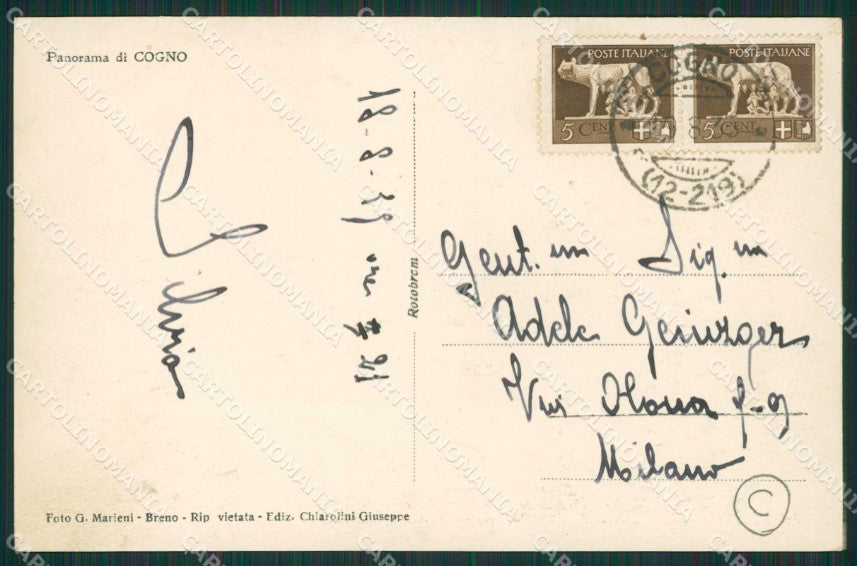 Panorama di COGNO
POSTE ITALIANE POSTE ITALIANE
5 CENT. 5 CENT.
COGNO
(12-219)
18-8-39 ore 21
Silvia
Rotobrom
Gent.ma Sig.na
Adele
Via Olona 7-9
Milano
C
Foto G. Marieni - Breno - Rip vietata - Ediz. Chiarolini Giuseppe
CARTOLINOMANIA